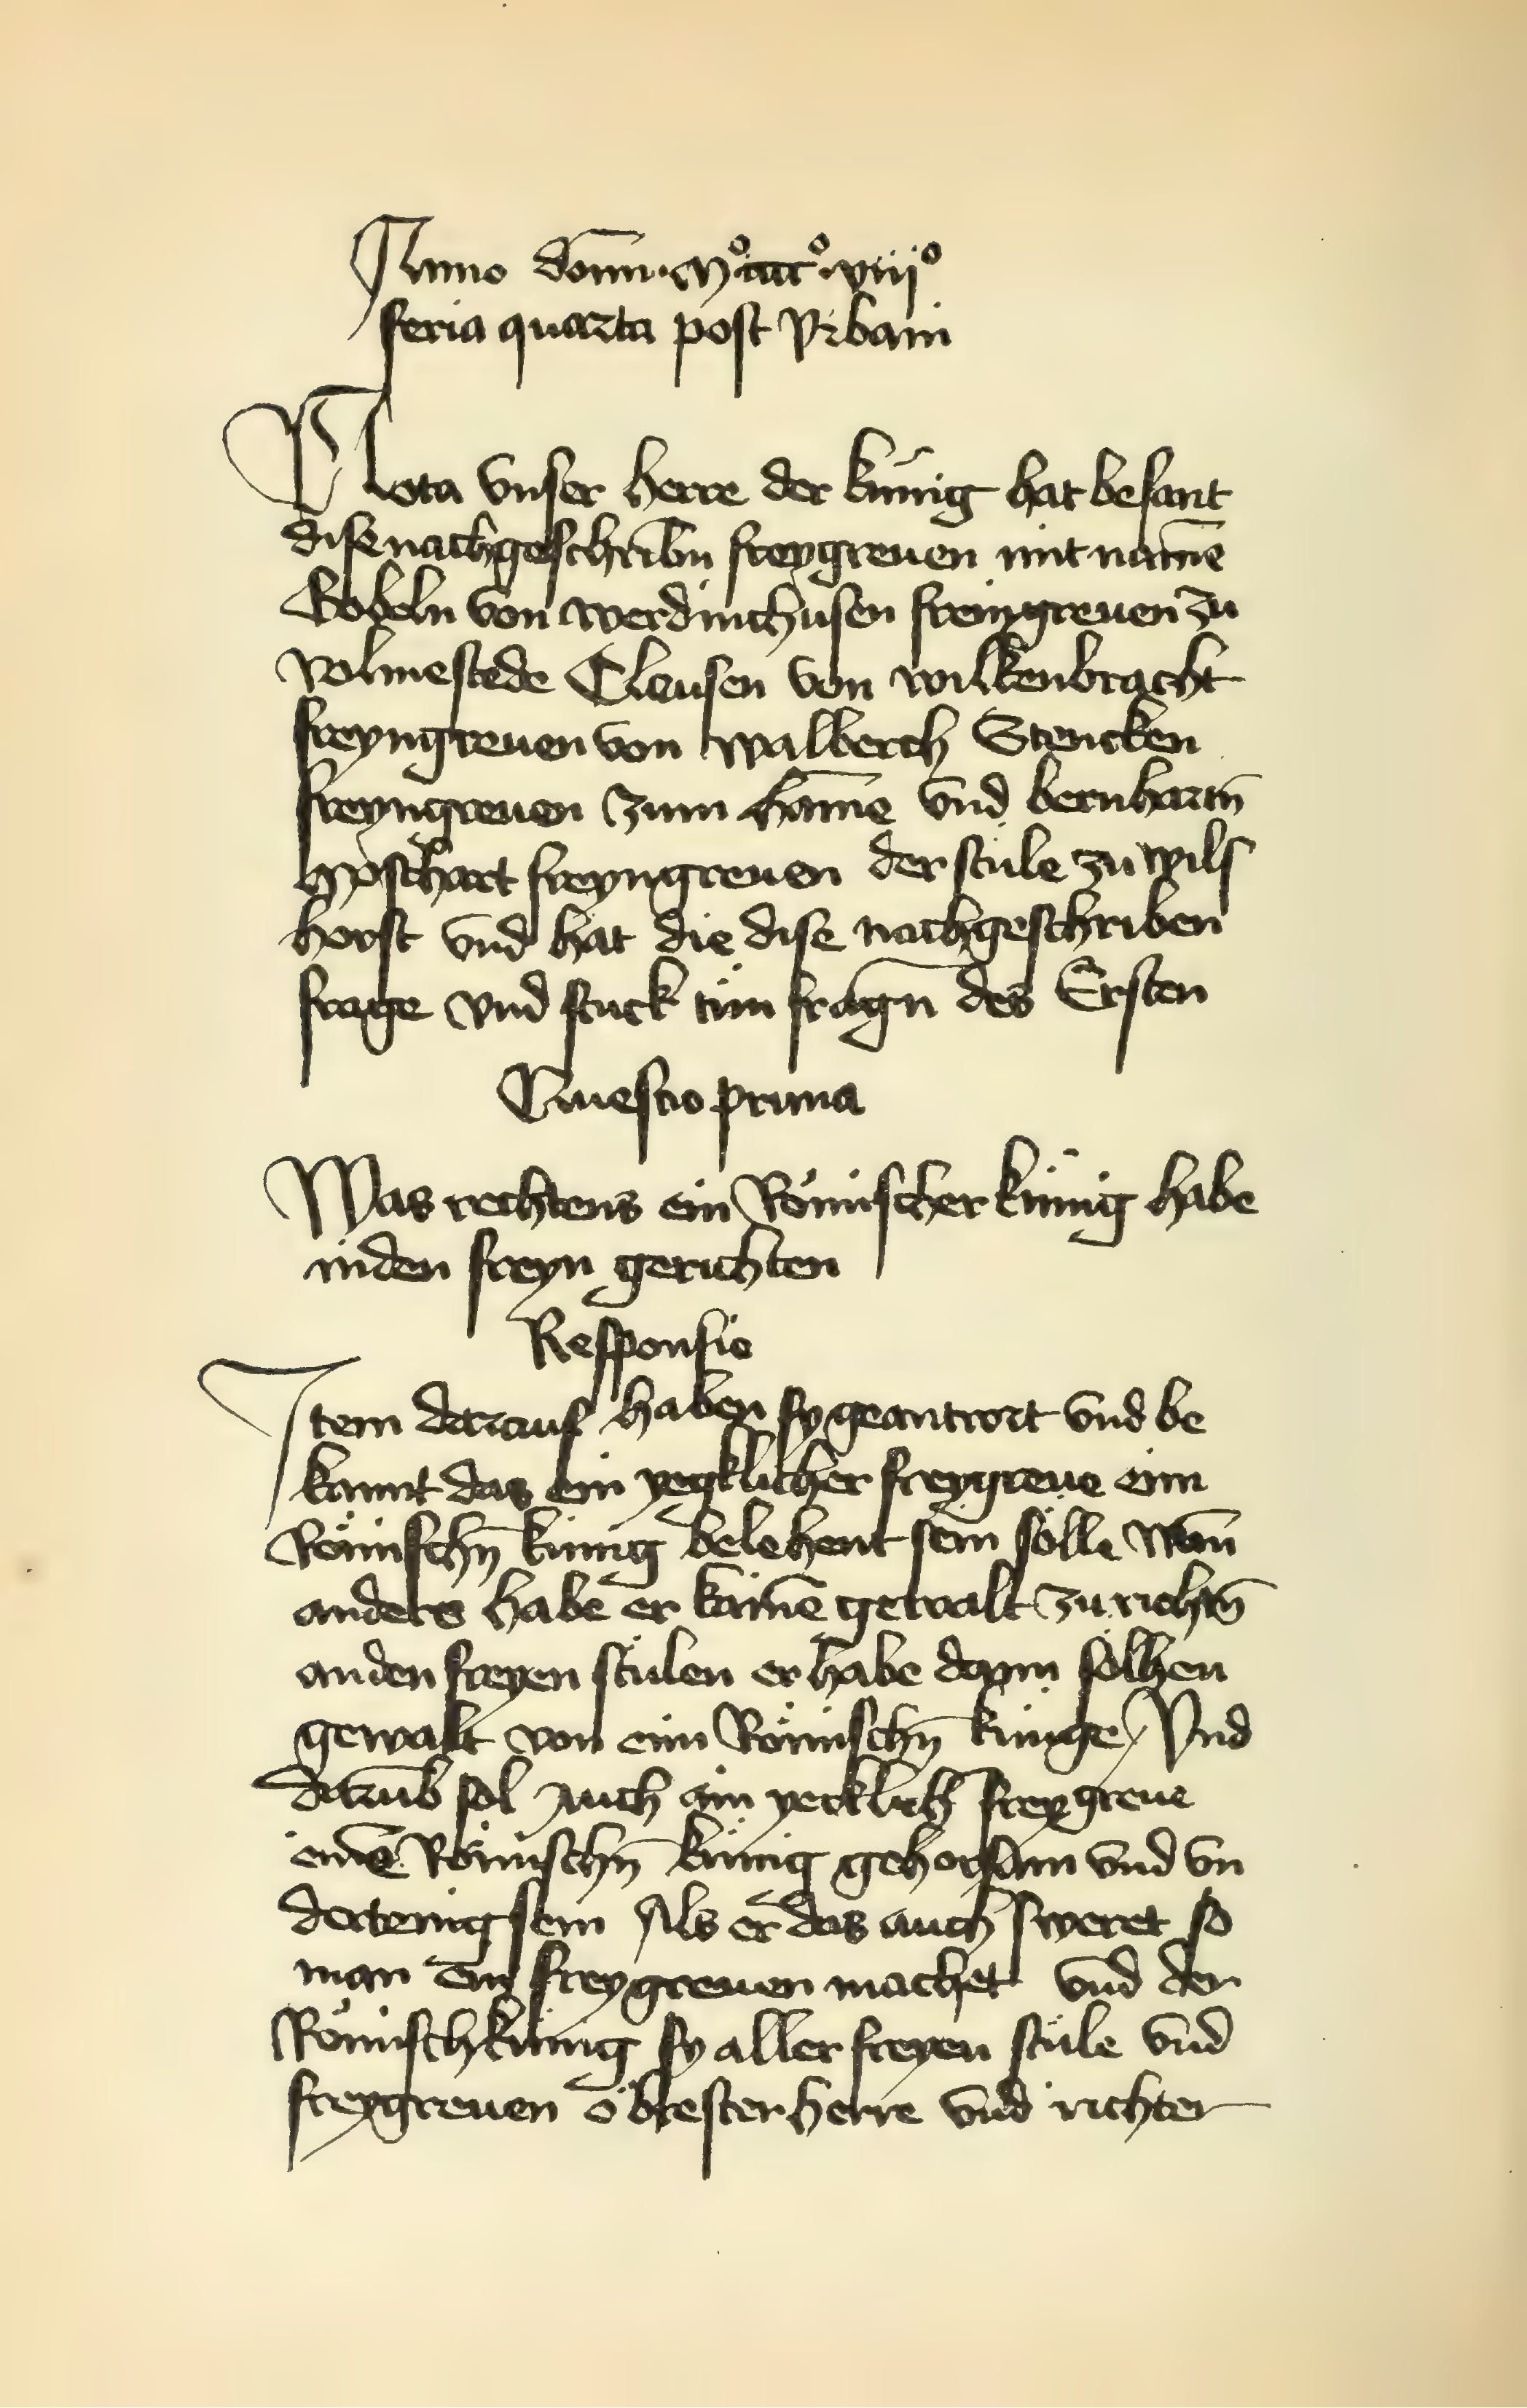 Anno dom̄. M°.cccc°.viij°
feria quarta post Vrbani
Nota vnser herre der kùnig hat besant
dise nachgeschribn̄ freygreuen mit namē
Gobeln von werdinchusen freingreuen zu
volmestede Clausen von wilkenbracht
freyngreuen von walberch Stencken
freyngreuen zum hāme vnd bernhartn̄
Moschart freyngreuen der stule zu wils
horst vnd hat die dise nachgeschriben
frage vnd stuck tùn fragn̄ des Ersten
Questio prima
Was rechtens ein Römischer künig habe
inden freyn gerichten
Responsio
Item darauf haben sy geantwort vnd be
kannt das ein yegklicher freygreue eim
Römischn̄ künig belehent sein sölle wan̄
anders habe er kainē gewalt zu richtn̄
anden freyen stülen er habe dann sölhen
gewalt von eim Römischn̄ künge / Vnd
darūb sol auch ain yecklich freygreue
einē Römischn̄ künig gehorsam vnd vn
dertenig sein Als er das auch sweret so
man ein freygreuen machet vnd der
Römisch künig sy aller freyen stüle vnd
freygreuen öbrester herre vnd richter